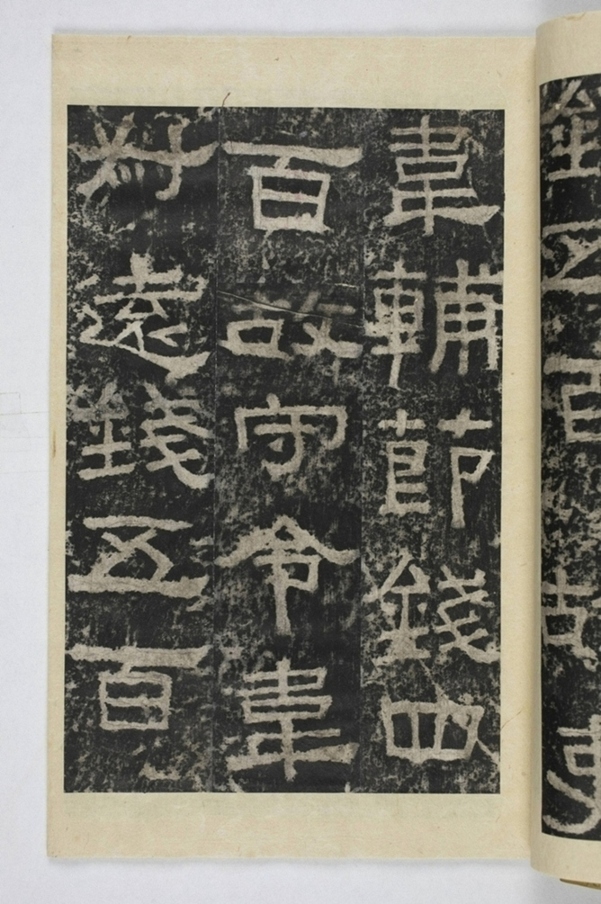 韋輔節錢四
百故守令韋
叔遠錢五百